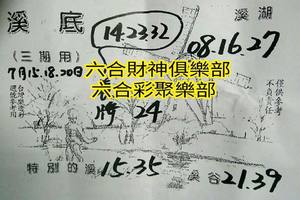 溪底
14.23.32
溪湖
08.16.27
(三期用)
7月15.18.20日
六合財神俱樂部
六合彩聚樂部
僅供參考
不負責任
牌 24
特別的溪 15.35
溪谷 21.39